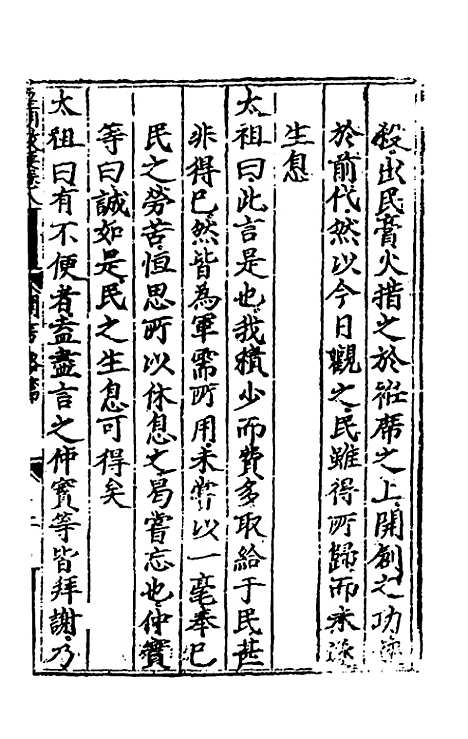 殺出民膏火措之於袵席之上開創之功
於前代然以今日觀之民雖得所歸而未遂
生息
太祖曰此言是也我積少而費多取給于民甚
非得已然皆為軍需所用未嘗以一毫奉己
民之勞苦恒思所以休息之曷嘗忘也仲實
等曰誠如是民之生息可得矣
太祖曰有不便者盍盡言之仲實等皆拜謝乃